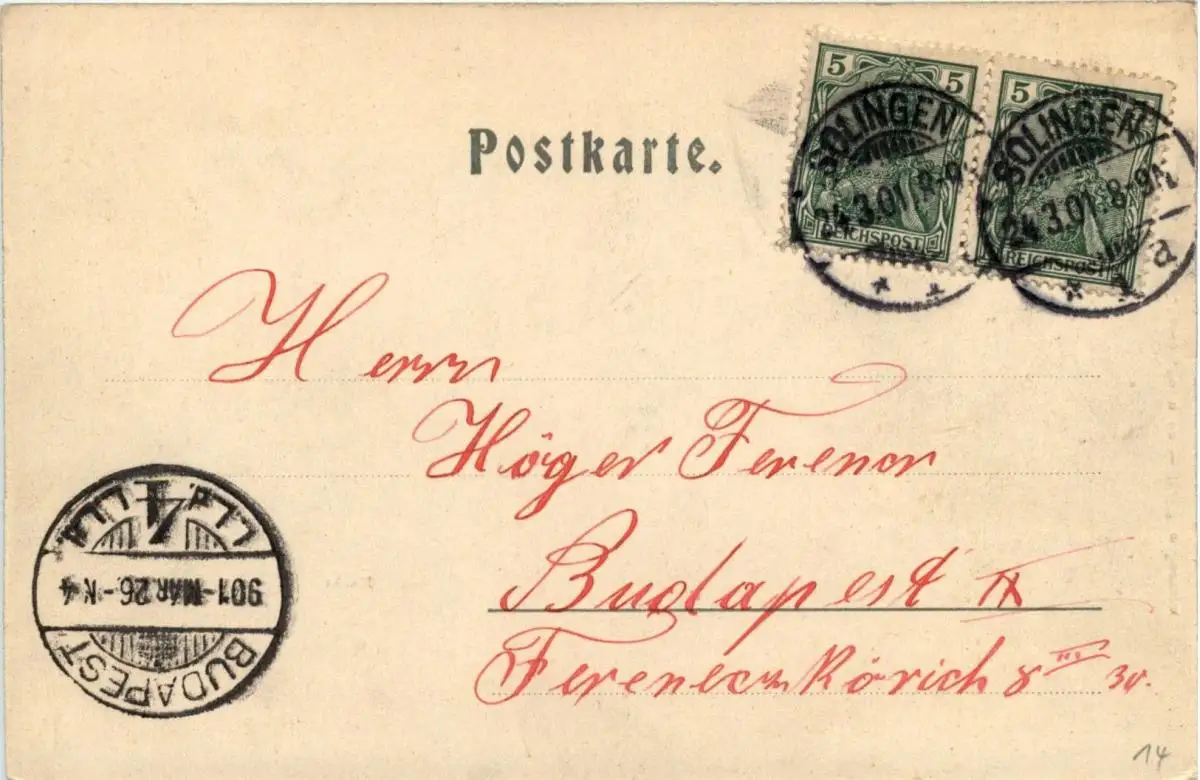 5 5
REICHSPOST
5
REICHSPOST
SOLINGEN
24.3.01.8-9
SOLINGEN
24.3.01.8-9
a
Postkarte.
Herrn
Höger Ferencz
Budapest IX
Ferencz Körút 8 III. 30.
BUDAPEST
901-MÁR.26-N4
4
14